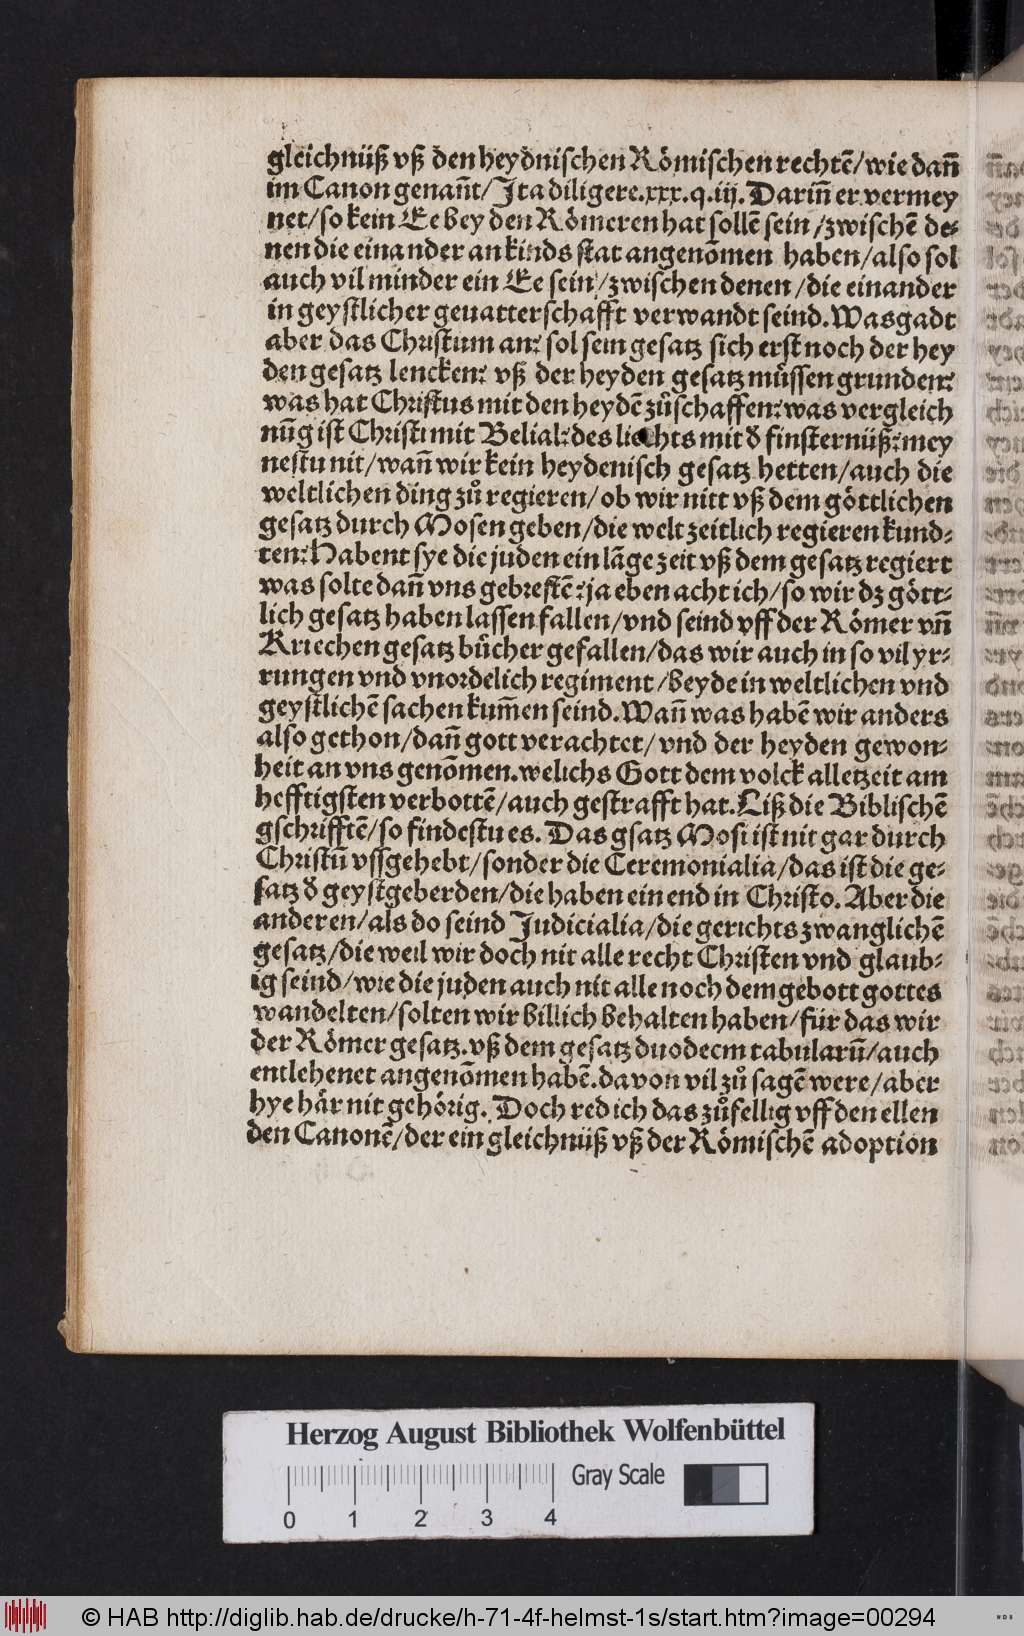 gleichnüß vß den heydnischen Römischen rechtẽ/wie dañ
im Canon genañt/Ita diligere.xxx.q.iij. Dariñ er vermey
net/so kein Ee bey den Römeren hat sollẽ sein/zwischẽ de⸗
nen die einander an kinds stat angenom̃en haben/also sol
auch vil minder ein Ee sein/zwischen denen/die einander
in geystlicher geuatterschafft verwandt seind. Was gadt
aber das Christum an: sol sein gesatz sich erst noch der hey
den gesatz lencken: vß der heyden gesatz müssen grunden:
was hat Christus mit den heydẽ zůschaffen: was vergleich
nũg ist Christi mit Belial: des liechts mit d̕ finsternüß: mey
nestu nit/wañ wir kein heydenisch gesatz hetten/auch die
weltlichen ding zů regieren/ob wir nitt vß dem göttlichen
gesatz durch Mosen geben/die welt zeitlich regieren kund⸗
ten: Habent sye die juden ein lãge zeit vß dem gesatz regiert
was solte dañ vns gebrestẽ: ja eben acht ich/so wir dz gött⸗
lich gesatz haben lassen fallen/vnd seind vff der Römer vñ
Kriechen gesatz bücher gefallen/das wir auch in so vil yr⸗
rungen vnd vnordelich regiment/beyde in weltlichen vnd
geystlichẽ sachen kum̃en seind. Wañ was habẽ wir anders
also gethon/dañ gott verachtet/vnd der heyden gewon⸗
heit an vns genõmen. welichs Gott dem volck alletzeit am
hefftigsten verbottẽ/auch gestrafft hat. Liß die Biblischẽ
gschrifftẽ/so findestu es. Das gsatz Mosi ist nit gar durch
Christũ vssgehebt/sonder die Ceremonialia/das ist die ge⸗
satz d̕ geystgeberden/die haben ein end in Christo. Aber die
anderen/als do seind Judicialia/die gerichts zwanglichẽ
gesatz/die weil wir doch nit alle recht Christen vnd glaub⸗
ig seind/wie die juden auch nit alle noch dem gebott gottes
wandelten/solten wir billich behalten haben/für das wir
der Römer gesatz. vß dem gesatz duodecm tabularũ/auch
entlehenet angenõmen habẽ. davon vil zů sagẽ were/aber
hye här nit gehörig. Doch red ich das zůfellig vff den ellen
den Canonẽ/der ein gleichnüß vß der Römischẽ adoption
Herzog August Bibliothek Wolfenbüttel
Gray Scale
0 1 2 3 4
© HAB http://diglib.hab.de/drucke/h-71-4f-helmst-1s/start.htm?image=00294